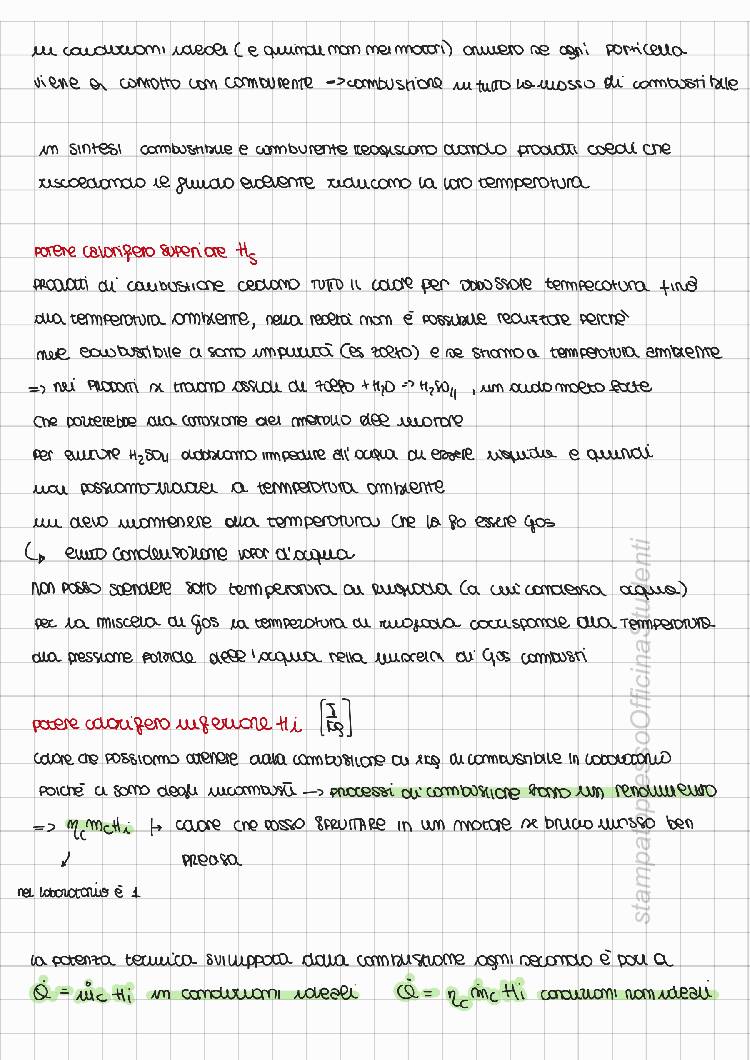 in condizioni ideali (e quindi non nei motori) ovvero se ogni particella
viene a contatto con comburente → combustione in tutta la massa di combustibile
in sintesi combustibile e comburente reagiscono dando prodotti caldi che
riscaldando il fluido evolvente riducono la loro temperatura
potere calorifero superiore Hs
prodotti di combustione cedono TUTTO il calore per abbassare temperatura fino
alla temperatura ambiente, nella realtà non è possibile realizzare perché
nel combustibile ci sono impurità (es zolfo) e se stiamo a temperatura ambiente
=> nei prodotti si trovano ossidi di zolfo + H2O → H2SO4, un acido molto forte
che porterebbe alla corrosione del metallo del motore
per evitare H2SO4 dobbiamo impedire all'acqua di essere liquida e quindi
non possiamo andare a temperatura ambiente
mi devo mantenere alla temperatura che la fa essere gas
↳ evito condensazione vapor d'acqua
non posso scendere sotto temperatura di rugiada (a cui condensa acqua)
per la miscela di gas la temperatura di rugiada corrisponde alla temperatura
alla pressione parziale dell'acqua nella miscela di gas combusti
potere calorifero inferiore Hi [J/kg]
calore che possiamo ottenere dalla combustione di 1kg di combustibile in laboratorio
Poiché ci sono degli incombusti → processi di combustione hanno un rendimento
=> ηc mc Hi |→ calore che posso SFRUTTARE in un motore se brucio massa ben
precisa
nel laboratorio è 1
la potenza termica sviluppata dalla combustione ogni secondo è pari a
Q̇ = ṁc Hi in condizioni ideali Q̇ = ηc ṁc Hi condizioni non ideali
stampatopressoOfficinaStudenti